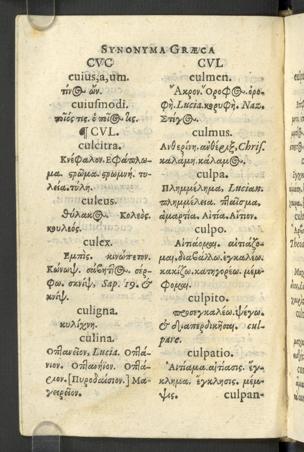 SYNONYMA GRÆCA
CVC
cuius,a,um.
τίν@ ὤν.
cuiusmodi.
ποῖός τις. ὁποῖός
¶ CVL.
culcitra.
Κνέφαλον. Εφάπλω-
μα. στρῶμα. στρωμνή. τυ-
λεία. τύλη.
culeus.
θύλακ@. Κολεός.
κουλεός.
culex.
Εμπὶς. κινώπετον.
Κώνωψ. σέρ-
φω. σκνίψ. Sap. 19. &
κνίψ.
culigna.
κυλίχνη.
culina.
Οπτανεῖον. Lucia. Οπτά-
νιον. Οπτανήϊον. Οπτά-
[Πυροδαίσιον.] Μα-
γειρεῖον.
CVL
culmen.
Ἄκρον. Ὄροφ@. ὀρο-
φή. Lucia. κορυφή. Naz.
Στέγ@.
culmus.
Ανθερίκη. Chris.
καλάμη. κάλαμ@.
culpa.
Πλημμέλημα. Lucian.
πλημμέλεια. πταῖσμα.
ἁμαρτία. Αἰτία. Αἴτιον.
culpo.
Αἰτιάομαι. αἰτιάζο-
μαι. διαβάλλω. ἐγκαλέω.
κακίζω. κατηγορέω. μέμ-
φομαι.
culpito.
προσεγκαλέω. ψέγω.
& cul-
pare.
culpatio.
Αἰτίαμα. αἰτίασις. ἔγ-
κλημα. ἔγκλησις. μέμ-
ψις. culpan-